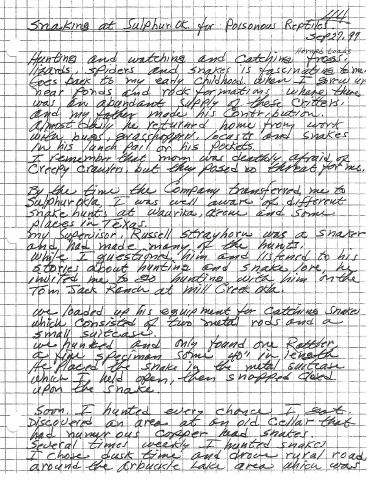 Snaking at Sulphur Ok. for Poisonous Reptiles
Sep 27. 99
Horned toads
Hunting and watching and catching frogs,
lizards, spiders and snakes is fascinating to me.
Goes back to my early childhood. When I grew up
near ponds and rock formations, where there
was an abundant supply of these critters.
and my father made his contribution.
almost daily he returned home from work
with bugs, grasshoppers, locust and snakes
in his lunch pail or his pockets.
I remember that mom was deathly afraid of
Creepy crawlers but they posed no threat for me.
By the time the Company transferred me to
Sulphur Okla, I was well aware of different
snake hunts at Waurika, and some
places in Texas.
my Supervisor, Russell Strayhorn was a snaker
and had made many of the hunts.
While I questioned him and listened to his
stories about hunting and snake lore, he
invited me to go hunting with him on the
Tom Jack Ranch at Mill Creek Okla
we loaded up his equipment for catching snakes
which consisted of two metal rods and a
small suitcase.
we hunted and only found one Rattler
a fine specimen some 40" in length
He placed the snake in the metal suitcase
which I held open, then snapped
upon the snake.
Soon I hunted every chance I
Discovered an area at an old cellar that
had numurous copper head snakes.
Several times weekly I hunted snakes
I chose dusk time and drove rural roads
around the Arbuckle Lake area which was